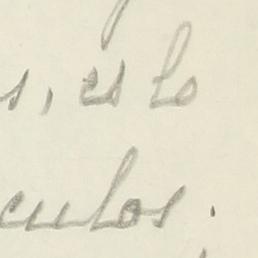 s, es lo
culos.